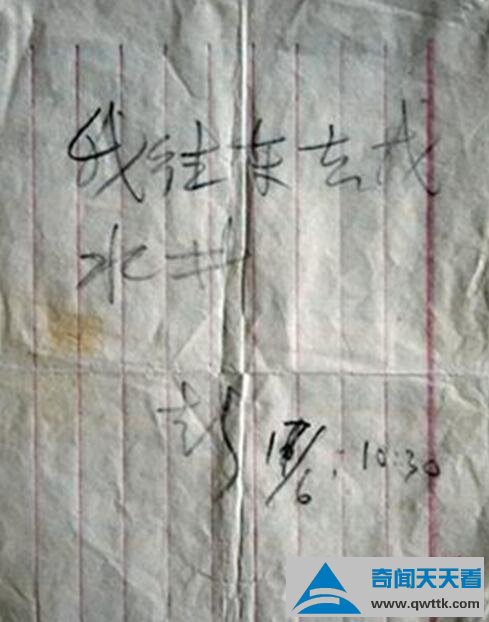 我往东去找
水井
彭 17/6. 10:30
奇闻天天看
www.qwttk.com